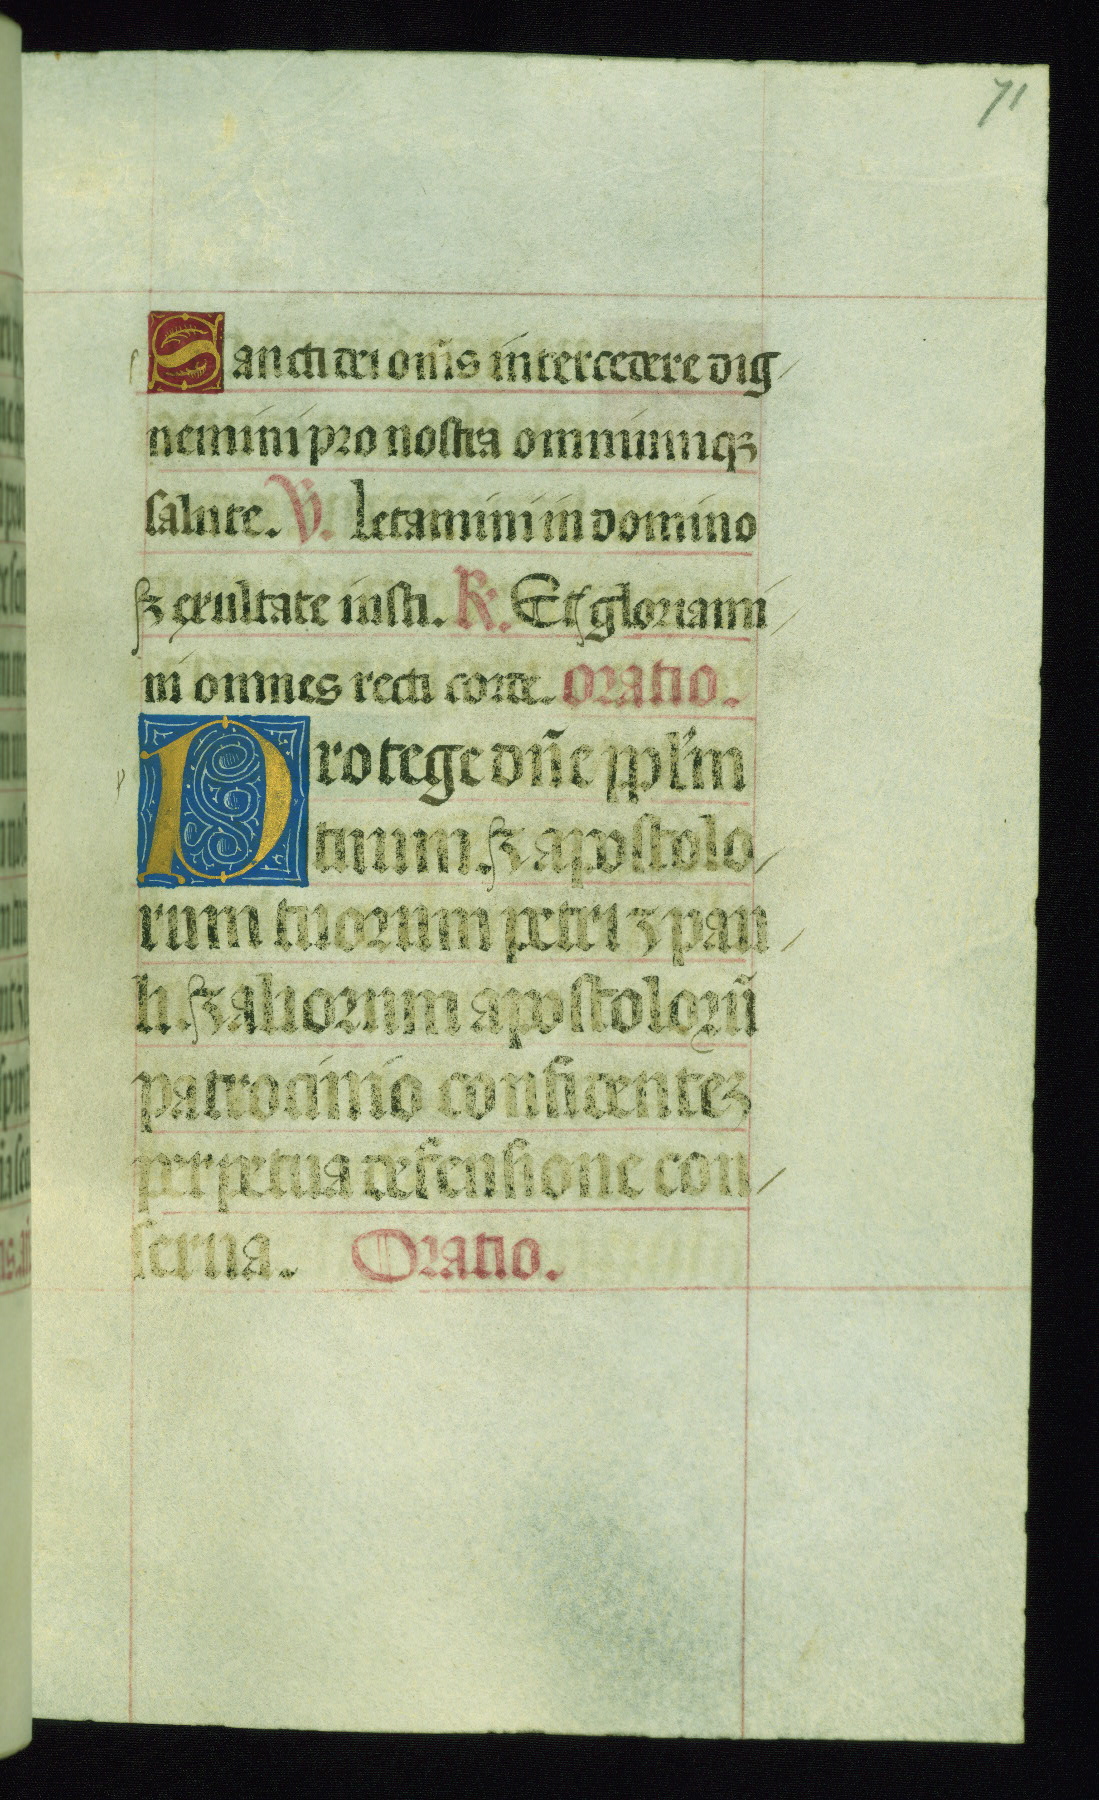 71
Sancti dei om̃s intercedere dig
nemini pro nostra omniumqꝫ
salute. ℣. Letamini in domino
⁊ exultate iusti. ℟. Et gloriami
ni omnes recti corde. oratio.
Protege dñe pplm̃
tuum. ⁊ apostolo
rum tuorum petri ⁊ pau
li. ⁊ aliorum apostolorũ
patrocinio confidentes
perpetua defensione con
serua. Oratio.